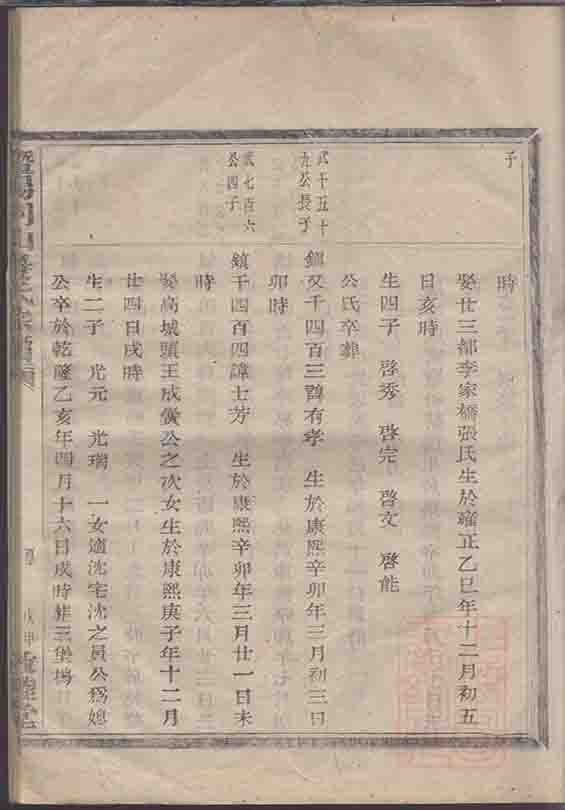 子
時
娶廿三都李家橋張氏生於雍正乙巳年十二月初五
日亥時
生四子 啓秀 啓完 啓文 啓能
公氏卒葬
貮千五十
九公長子
鎮又千四百三諱有孝 生於康熙辛卯年三月初三日
卯時
貮七百六
公四子
鎮千四百四諱士芳 生於康熙辛卯年三月廿一日未
時
娶高城頭王成黌公之次女生於康熙庚子年十二月
廿四日戌時
生二子 光元 光瑞 一女適沈宅沈之員公爲媳
公卒於乾隆乙亥年四月十六日戌時葬三堡塢